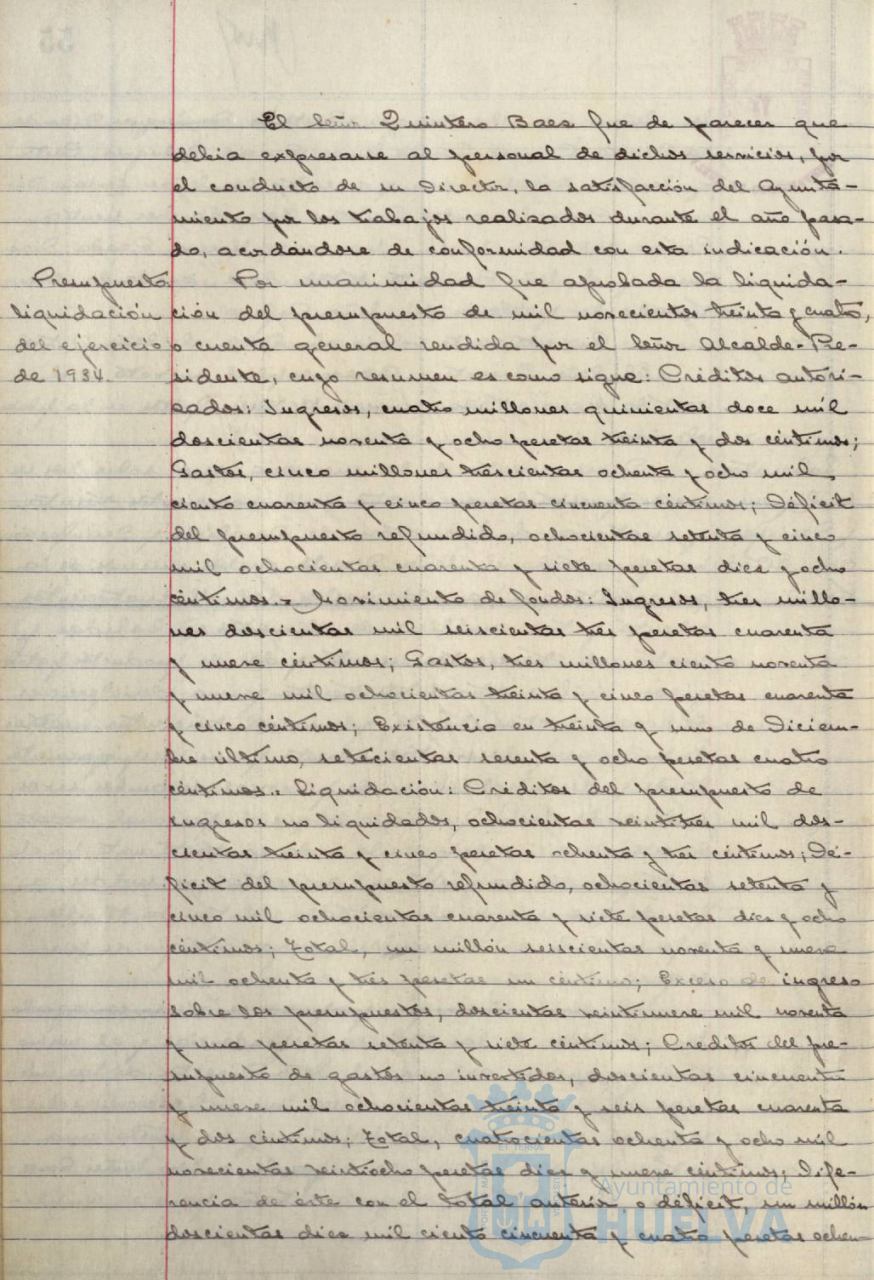 El Señor Quintero Baez fue de parecer que
debía expresarse al personal de dichos servicios, por
el conducto de su Director, la satisfacción del Ayunta-
miento por los trabajos realizados durante el año pasa-
do, acordándose de conformidad con esta indicación.
Presupuesto
liquidación
del ejercicio
de 1934.
Por unanimidad fue aprobada la liquida-
ción del presupuesto de mil novecientos treinta y cuatro,
o cuenta general rendida por el Señor Alcalde-Pre-
sidente, cuyo resumen es como sigue: Créditos autori-
zados: Ingresos, cuatro millones quinientas doce mil
doscientas noventa y ocho pesetas treinta y dos céntimos;
Gastos, cinco millones trescientas ochenta y ocho mil
ciento cuarenta y cinco pesetas cincuenta céntimos; Déficit
del presupuesto refundido, ochocientas setenta y cinco
mil ochocientas cuarenta y siete pesetas diez y ocho
céntimos.- Movimiento de fondos: Ingresos, tres millo-
nes doscientas mil seiscientas tres pesetas cuarenta
y nueve céntimos; Gastos, tres millones ciento noventa
y nueve mil ochocientas treinta y cinco pesetas cuarenta
y cinco céntimos; Existencia en treinta y uno de Diciem-
bre último, setecientas sesenta y ocho pesetas cuatro
céntimos.- Liquidación: Créditos del presupuesto de
ingresos no liquidados, ochocientas veintitres mil dos-
cientas treinta y cinco pesetas ochenta y tres céntimos; Dé-
ficit del presupuesto refundido, ochocientas setenta y
cinco mil ochocientas cuarenta y siete pesetas diez y ocho
céntimos; Total, un millón seiscientas noventa y nueve
mil ochenta y tres pesetas un céntimo; Exceso de ingreso
sobre los presupuestos, doscientas veintinueve mil noventa
y una pesetas setenta y siete céntimos; Creditos del pre-
supuesto de gastos no invertidos, doscientas cincuenta
y nueve mil ochocientas treinta y seis pesetas cuarenta
y dos céntimos; Total, cuatrocientas ochenta y ocho mil
novecientas veintiocho pesetas diez y nueve céntimos; Dife-
rencia de éste con el total anterior o déficit, un millón
doscientas diez mil ciento cincuenta y cuatro pesetas ochen-
Ayuntamiento de
HUELVA